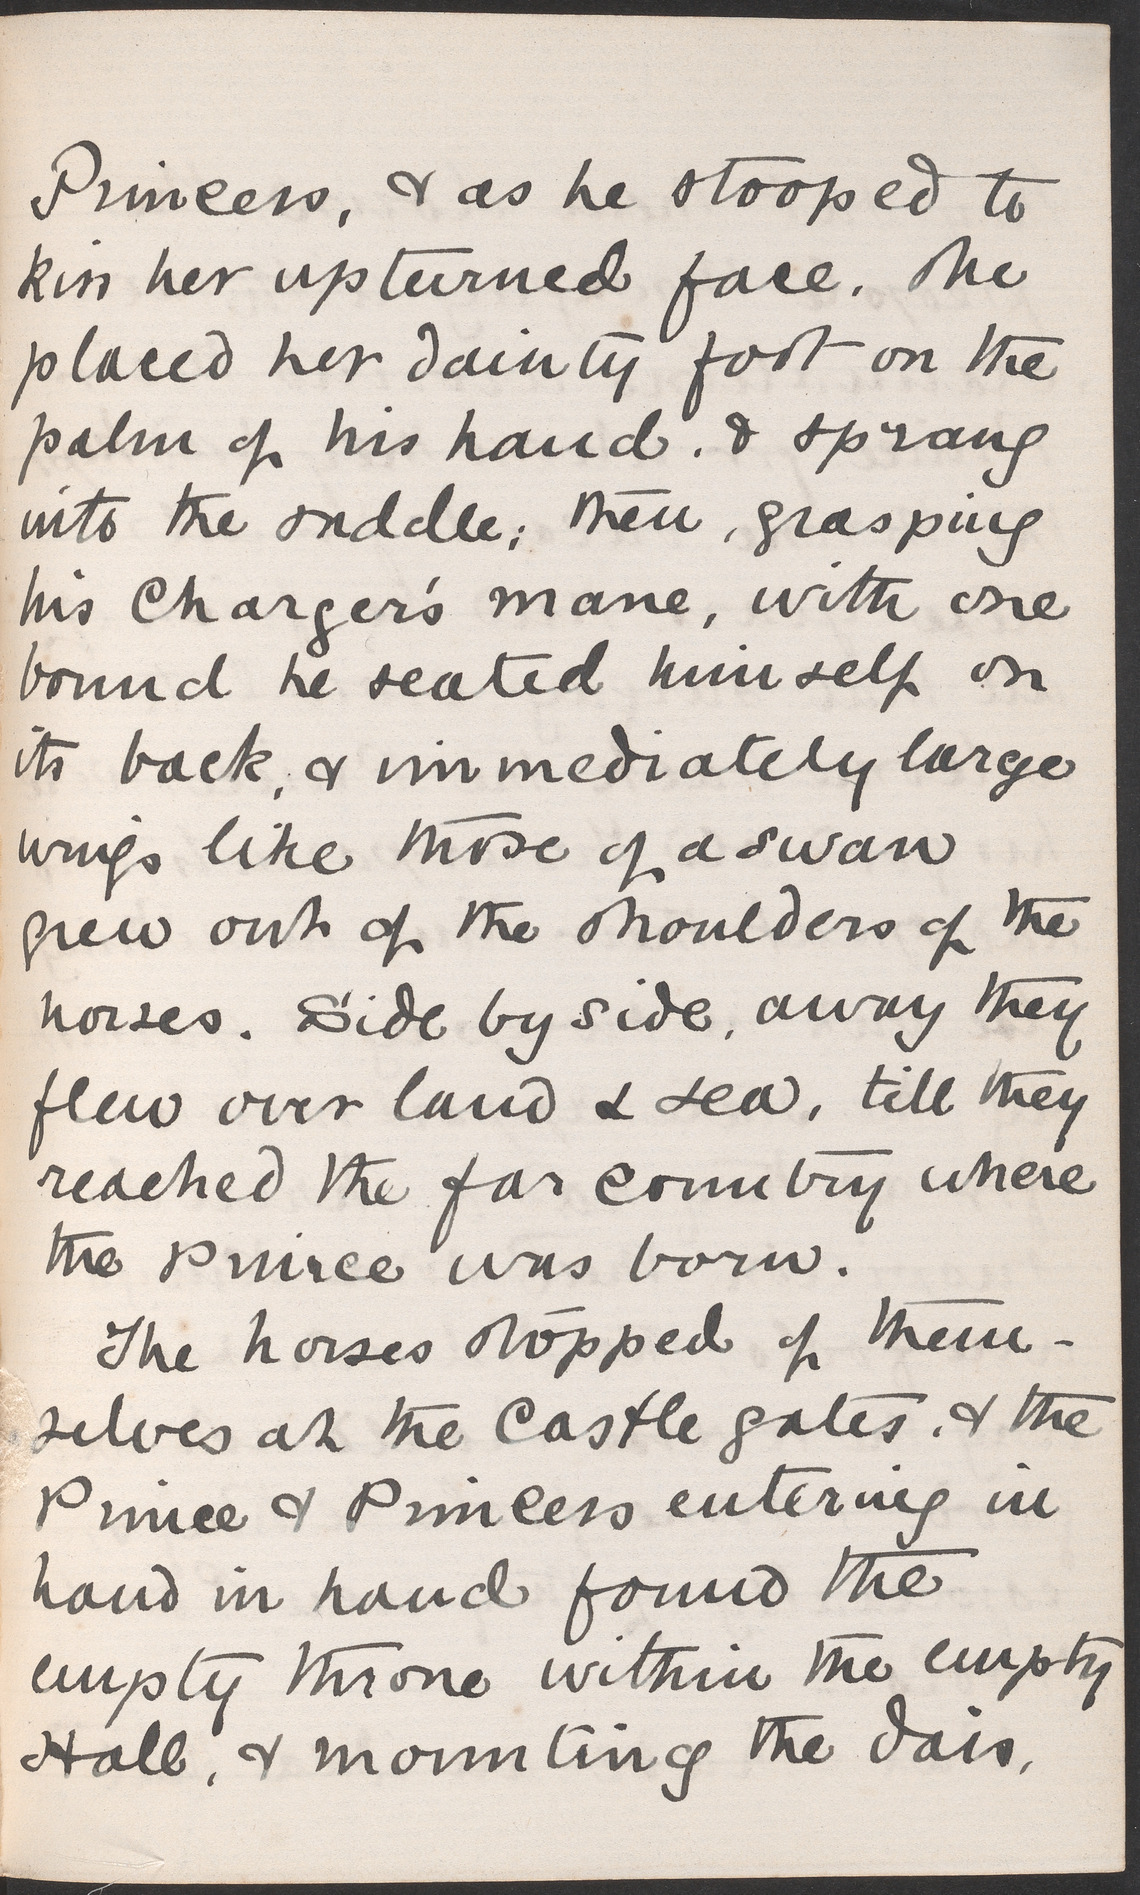 Princess, & as he stooped to
kiss her upturned face, she
placed her dainty foot on the
palm of his hand, & sprang
into the saddle; then, grasping
his Charger's mane, with one
bound he seated himself on
its back, & immediately large
wings like those of a swan
grew out of the shoulders of the
horses. Side by side, away they
flew over land & sea, till they
reached the far country where
the Prince was born.
The horses stopped of them-
selves at the Castle gates, & the
Prince & Princess entering in
hand in hand found the
empty throne within the empty
Hall, & mounting the dais,